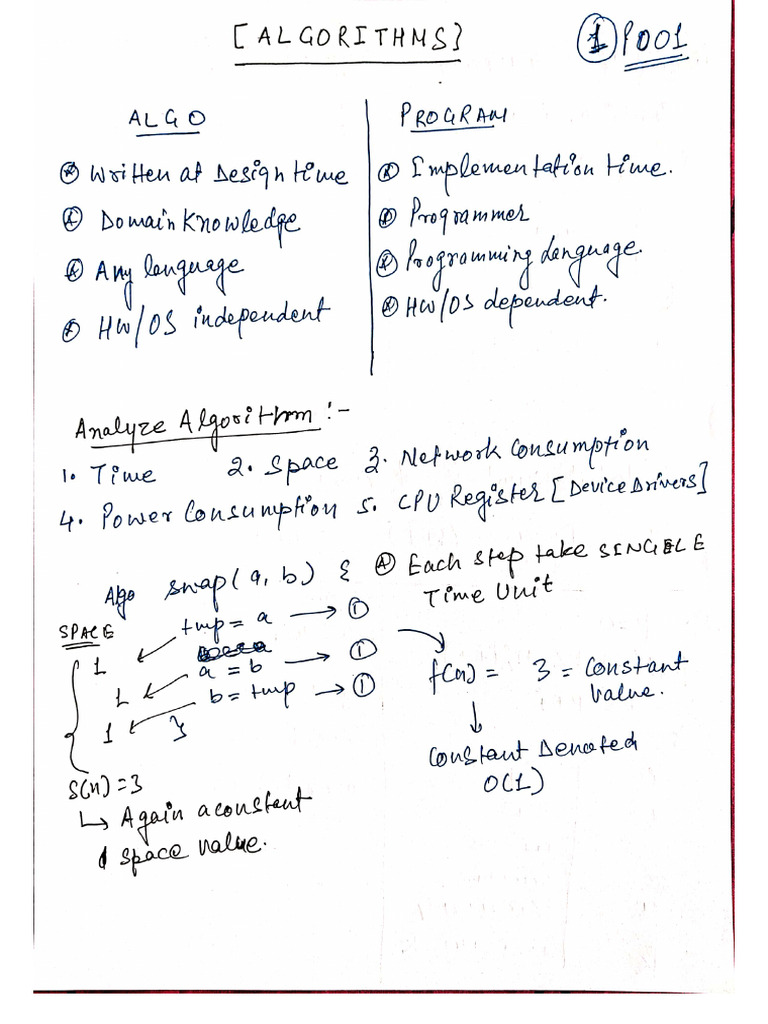 [ALGORITHMS]
1 P001
ALGO
Written at Design time
Domain Knowledge
Any language
HW/OS independent
PROGRAM
Implementation time.
Programmer
Programming Language.
HW/OS dependent.
Analyze Algorithm :-
1. Time 2. Space 3. Network Consumption
4. Power Consumption 5. CPU Register [Device Drivers]
Algo swap(a, b) {
tmp = a → 1
a = b → 1
b = tmp → 1
}
Each step take SINGLE
Time Unit
f(n) = 3 = Constant
value.
Constant Denoted
O(1)
SPACE
1
1
1
S(n) = 3
↳ Again a constant
space value.